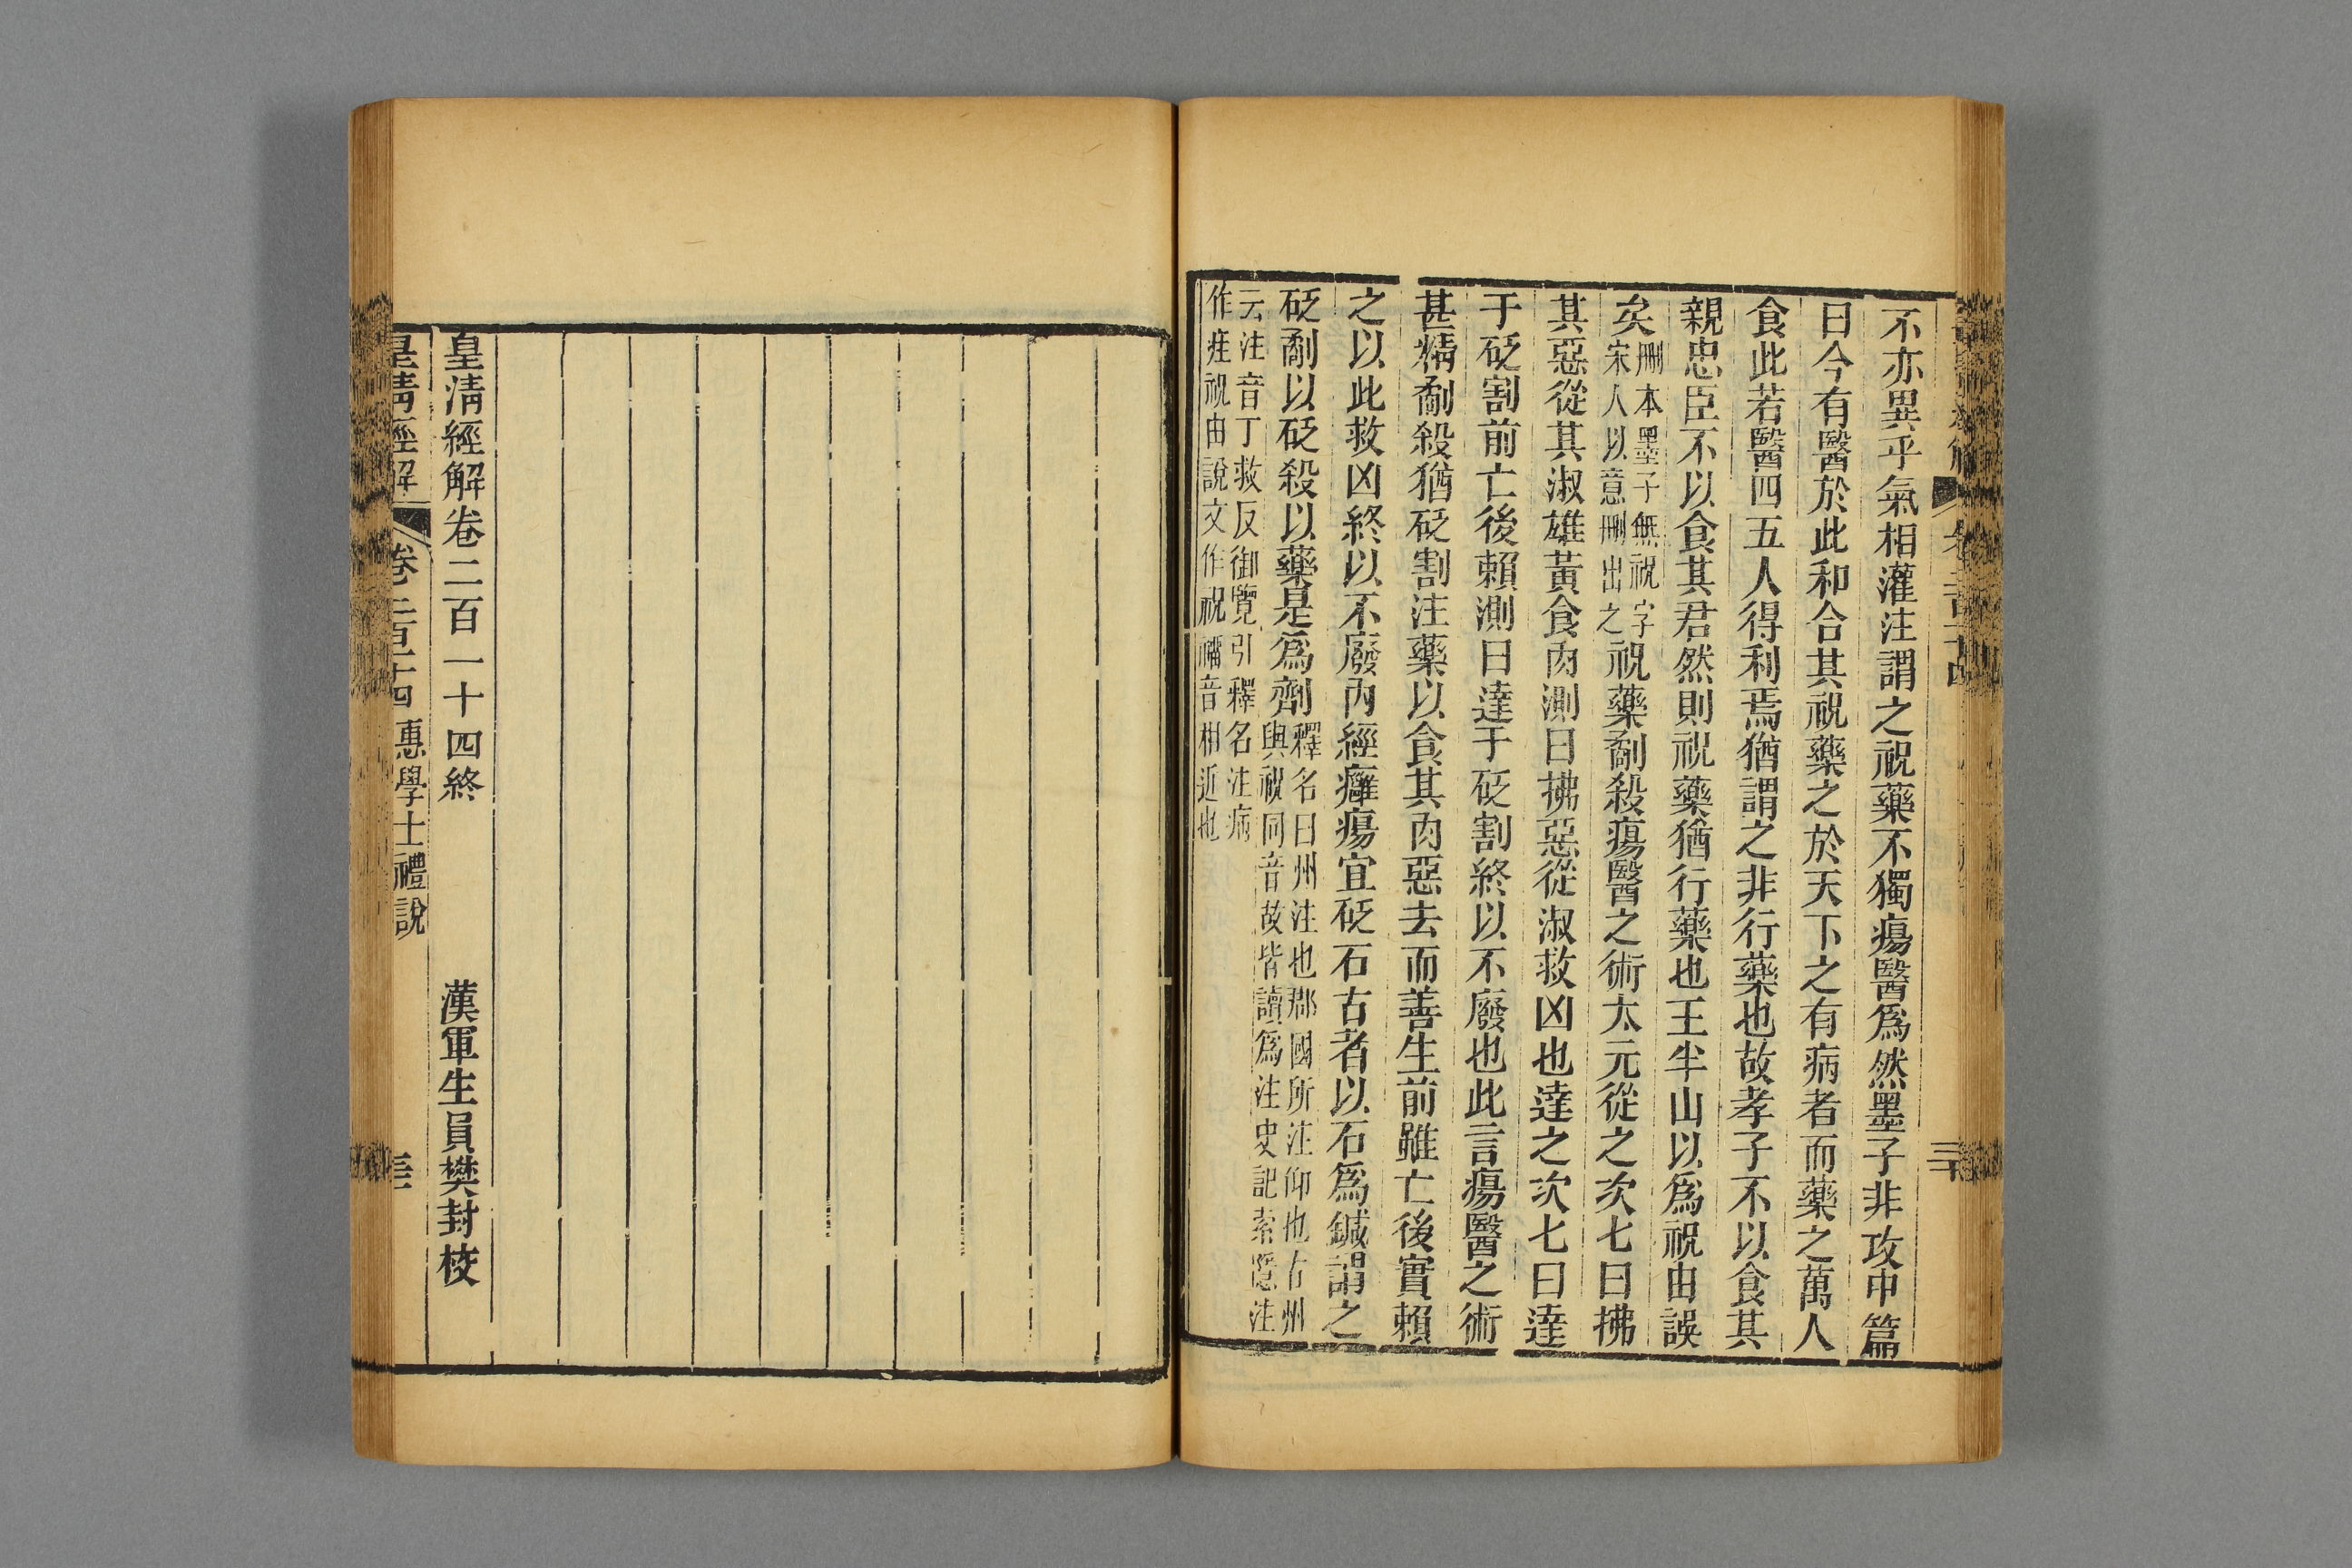 不亦異乎氣相灌注謂之祝藥不獨瘍醫爲然墨子非攻中篇
曰今有醫於此和合其祝藥之於天下之有病者而藥之萬人
食此若醫四五人得利焉猶謂之非行藥也故孝子不以食其
親忠臣不以食其君然則祝藥猶行藥也王半山以爲祝由誤
矣刪本墨子無祝字宋人以意刪出之祝藥劀殺瘍醫之術太元從之次七曰拂
其惡從其淑雄黃食肉測曰拂惡從淑救凶也達之次七曰達
于砭割前亡後賴測曰達于砭割終以不廢也此言瘍醫之術
甚精劀殺猶砭割注藥以食其肉惡去而善生前雖亡後實賴
之以此救凶終以不廢內經癰瘍宜砭石古者以石爲鍼謂之
砭劀以砭殺以藥是爲劑釋名曰州注也郡國所注仰也古州與祝同音故皆讀爲注史記索隱注
云注音丁救反御覽引釋名注病作疰祝由說文作祝𥛚音相近也
三十
皇清經解卷二百一十四終
漢軍生員樊封校
皇清經解
卷二百一十四
惠學士禮說